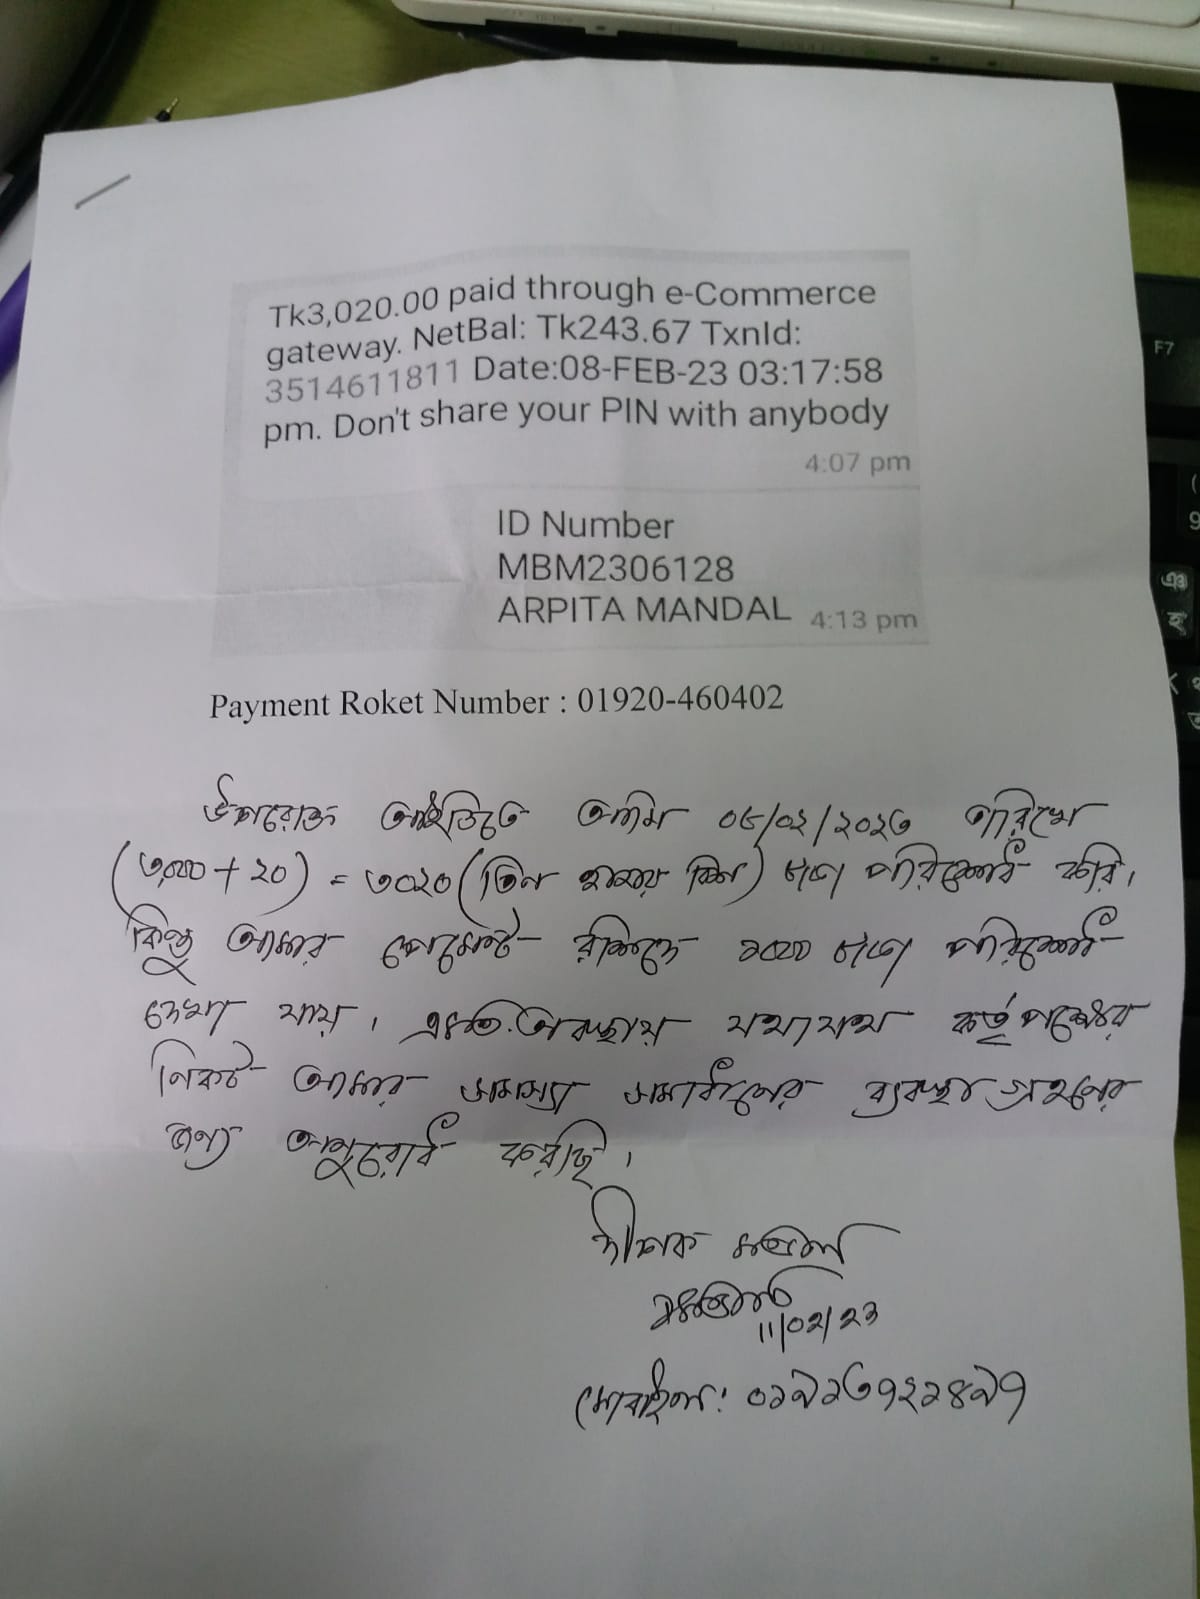 Tk3,020.00 paid through e-Commerce
gateway. NetBal: Tk243.67 TxnId:
3514611811 Date:08-FEB-23 03:17:58
pm. Don't share your PIN with anybody
4:07 pm
ID Number
MBM2306128
ARPITA MANDAL 4:13 pm
Payment Roket Number : 01920-460402
উপরোক্ত আইডিতে আমি ০৮/০২/২০২৩ তারিখে
(৩,০০০ + ২০) = ৩০২০ (তিন হাজার বিশ) টাকা পরিশোধ করি।
কিন্তু আমার পেমেন্ট রশিদে ১০০০ টাকা পরিশোধ
দেখা যায়। এমতাবস্থায় যথাযথ কর্তৃপক্ষের
নিকট আমার সমস্যা সমাধানের ব্যবস্থা গ্রহণের
জন্য অনুরোধ করছি।
দীপক মণ্ডল
11/02/23
মোবাইল: ০১৯১৩৭২১৪৯৭
F7
9